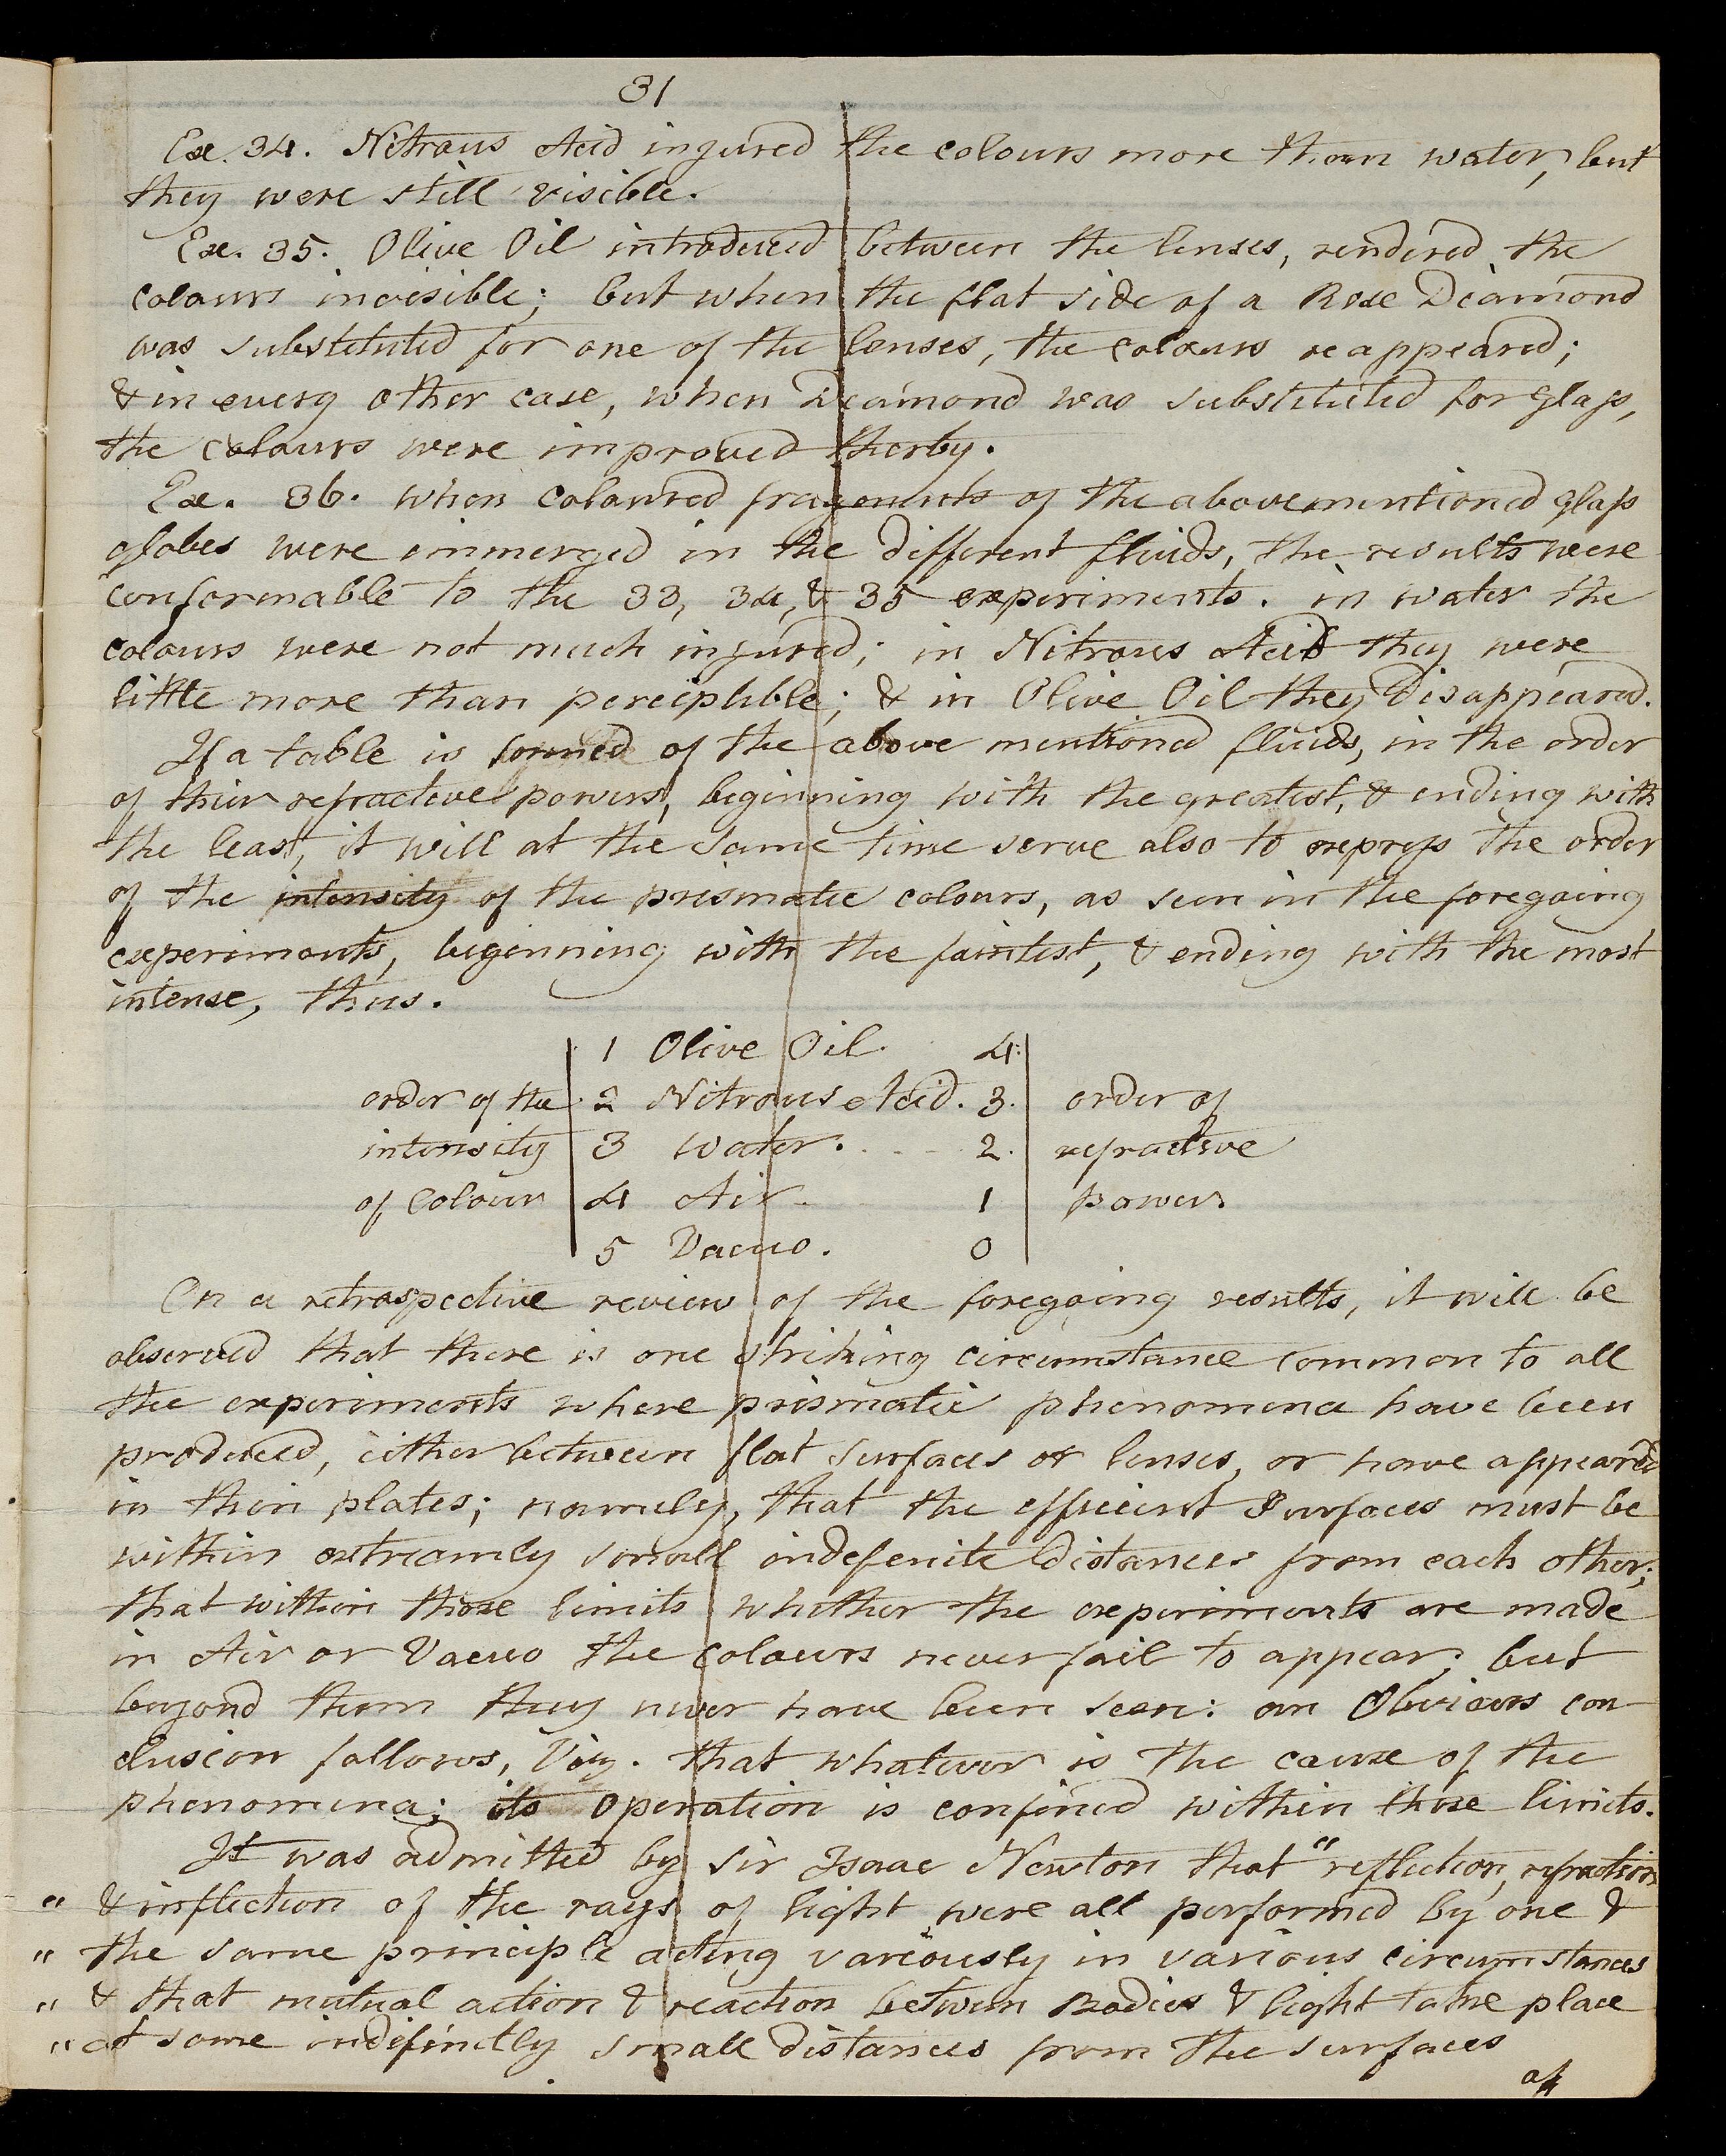 31
Ex. 34. Nitrous Acid injured the colours more than water, but
they were still visible.
Ex. 35. Olive Oil introduced between the lenses, rendered the
colours invisible; but when the flat side of a Rose Diamond
was substituted for one of the lenses, the colours reappeared;
& in every other case, when Diamond was substituted for glass,
the colours were improved therby.
Ex. 36. when coloured fragments of the abovementioned glass
globes were immerged in the different fluids, the results were
conformable to the 33, 34, & 35 experiments. in water the
colours were not much injured; in Nitrous Acid they were
little more than perceptible; & in Olive Oil they Disappeared.
If a table is formed of the above mentioned fluids, in the order
of their refractive powers, beginning with the greatest, & ending with
the least, it will at the same time serve also to express the order
of the intensity of the prismatic colours, as seen in the foregoing
experiments, beginning with the faintest, & ending with the most
intense, thus.
1 Olive Oil. 4.
order of the 2 Nitrous Acid. 3. order of
intensity 3 Water. 2. refractive
of Colour 4 Air 1 power.
5 Vacuo. 0
On a retrospective review of the foregoing results, it will be
observed that there is one striking circumstance common to all
the experiments where prismatic phenomena have been
produced, either between flat surfaces or lenses, or have appeared
in thin plates; namely, that the efficient Surfaces must be
within extreamly small indefenite distances from each other;
that within those limits whether the experiments are made
in Air or Vacuo the colours never fail to appear; but
beyond them they never have been seen: an Obvious con-
clusion follows, Viz. that whatever is the cause of the
phenomena; its Operation is confined within those limits.
It was admitted by Sir Isaac Newton that "reflection, refraction
" & inflection of the rays of light were all performed by one &
" the same principle acting variously in various circumstances
" & that mutual action & reaction between Bodies & light take place
" at some indefinetly small distances from the surfaces
of